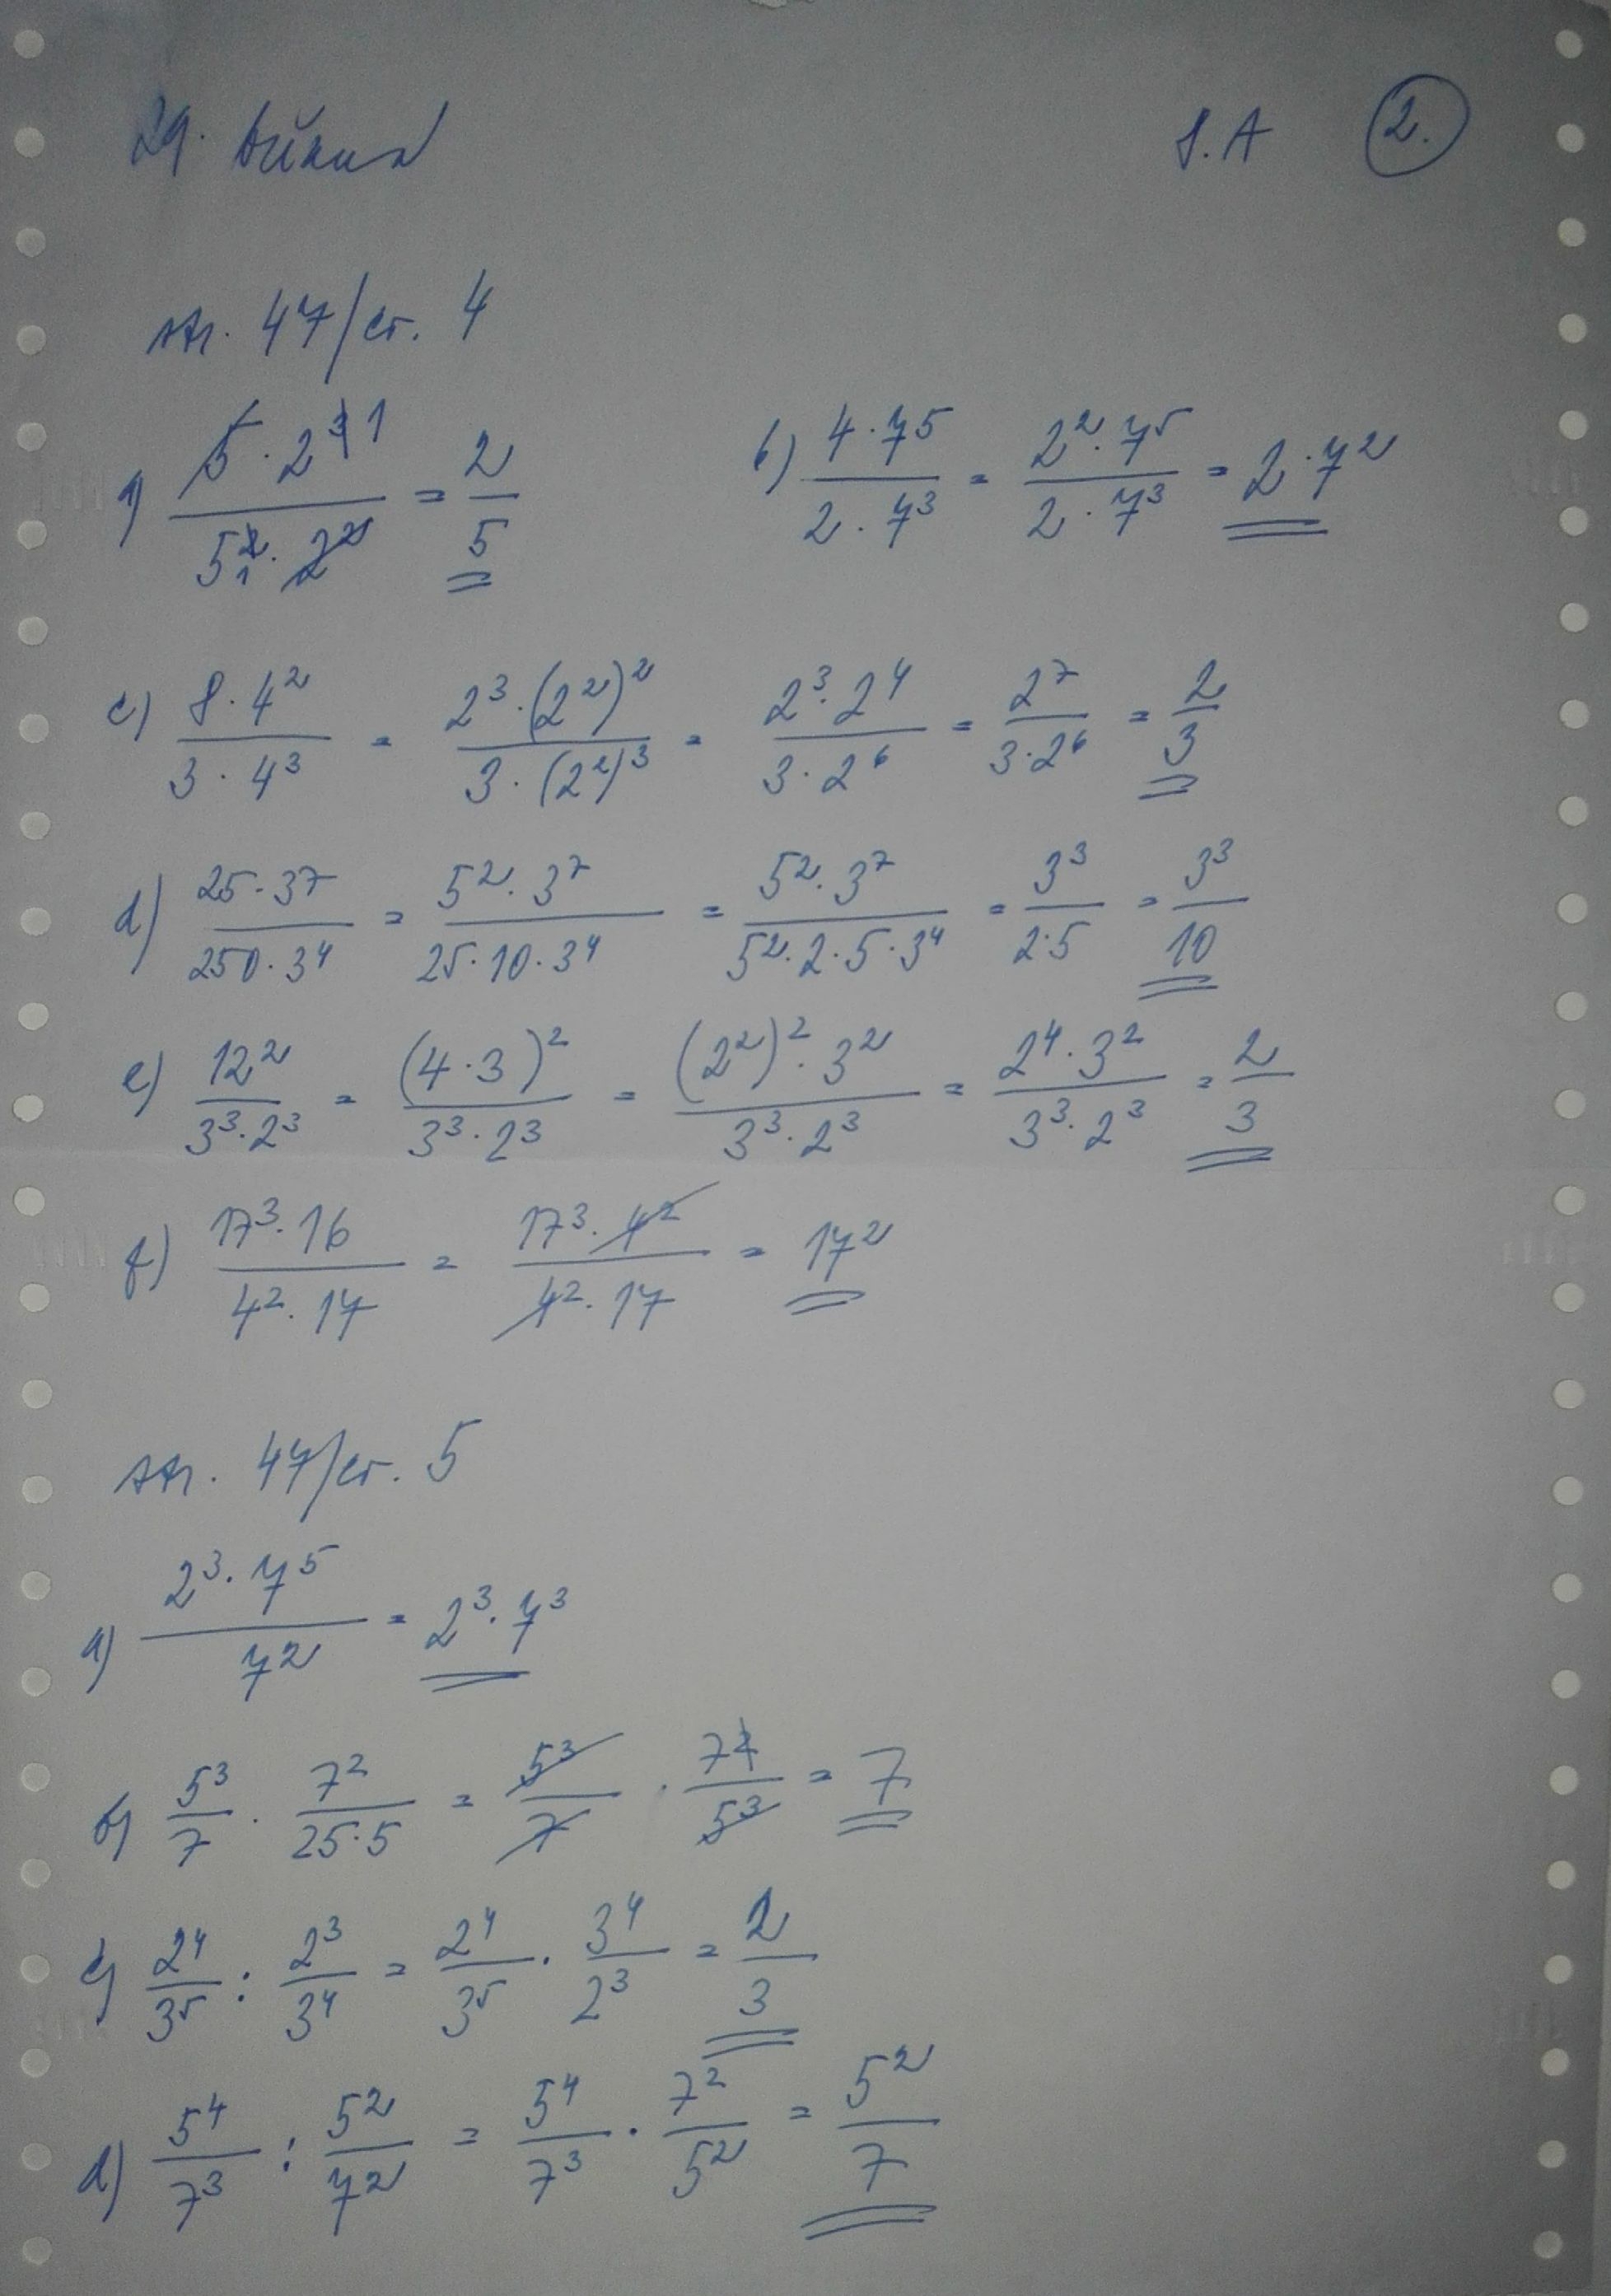 29. března 8.A 2.
str. 47/cv. 4
a) (5 · 2^3 1)/(5^2 1 · 2^2) = 2/5 b) (4 · 7^5)/(2 · 7^3) = (2^2 · 7^5)/(2 · 7^3) = 2 · 7^2
c) (8 · 4^2)/(3 · 4^3) = (2^3 · (2^2)^2)/(3 · (2^2)^3) = (2^3 · 2^4)/(3 · 2^6) = 2^7/(3 · 2^6) = 2/3
d) (25 · 3^7)/(250 · 3^4) = (5^2 · 3^7)/(25 · 10 · 3^4) = (5^2 · 3^7)/(5^2 · 2 · 5 · 3^4) = 3^3/(2 · 5) = 3^3/10
e) 12^2/(3^3 · 2^3) = (4 · 3)^2/(3^3 · 2^3) = ((2^2)^2 · 3^2)/(3^3 · 2^3) = (2^4 · 3^2)/(3^3 · 2^3) = 2/3
f) (17^3 · 16)/(4^2 · 17) = (17^3 · 4^2)/(4^2 · 17) = 17^2
str. 47/cv. 5
a) (2^3 · 7^5)/7^2 = 2^3 · 7^3
b) 5^3/7 · 7^2/(25 · 5) = 5^3/7 · 7^2/5^3 = 7
c) 2^4/3^5 : 2^3/3^4 = 2^4/3^5 · 3^4/2^3 = 2/3
d) 5^4/7^3 : 5^2/7^2 = 5^4/7^3 · 7^2/5^2 = 5^2/7